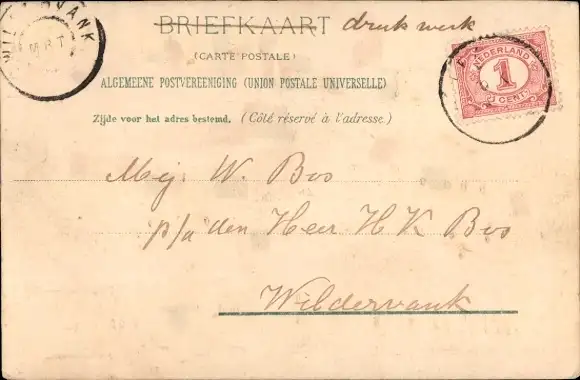 BRIEFKAART druk werk
(CARTE POSTALE)
ALGEMEENE POSTVEREENIGING (UNION POSTALE UNIVERSELLE)
Zijde voor het adres bestemd. (Côté réservé à l'adresse.)
NEDERLAND
1
CENT
MRT
Mej. W. Bos
p/a den Heer H K Bos
Wildervank